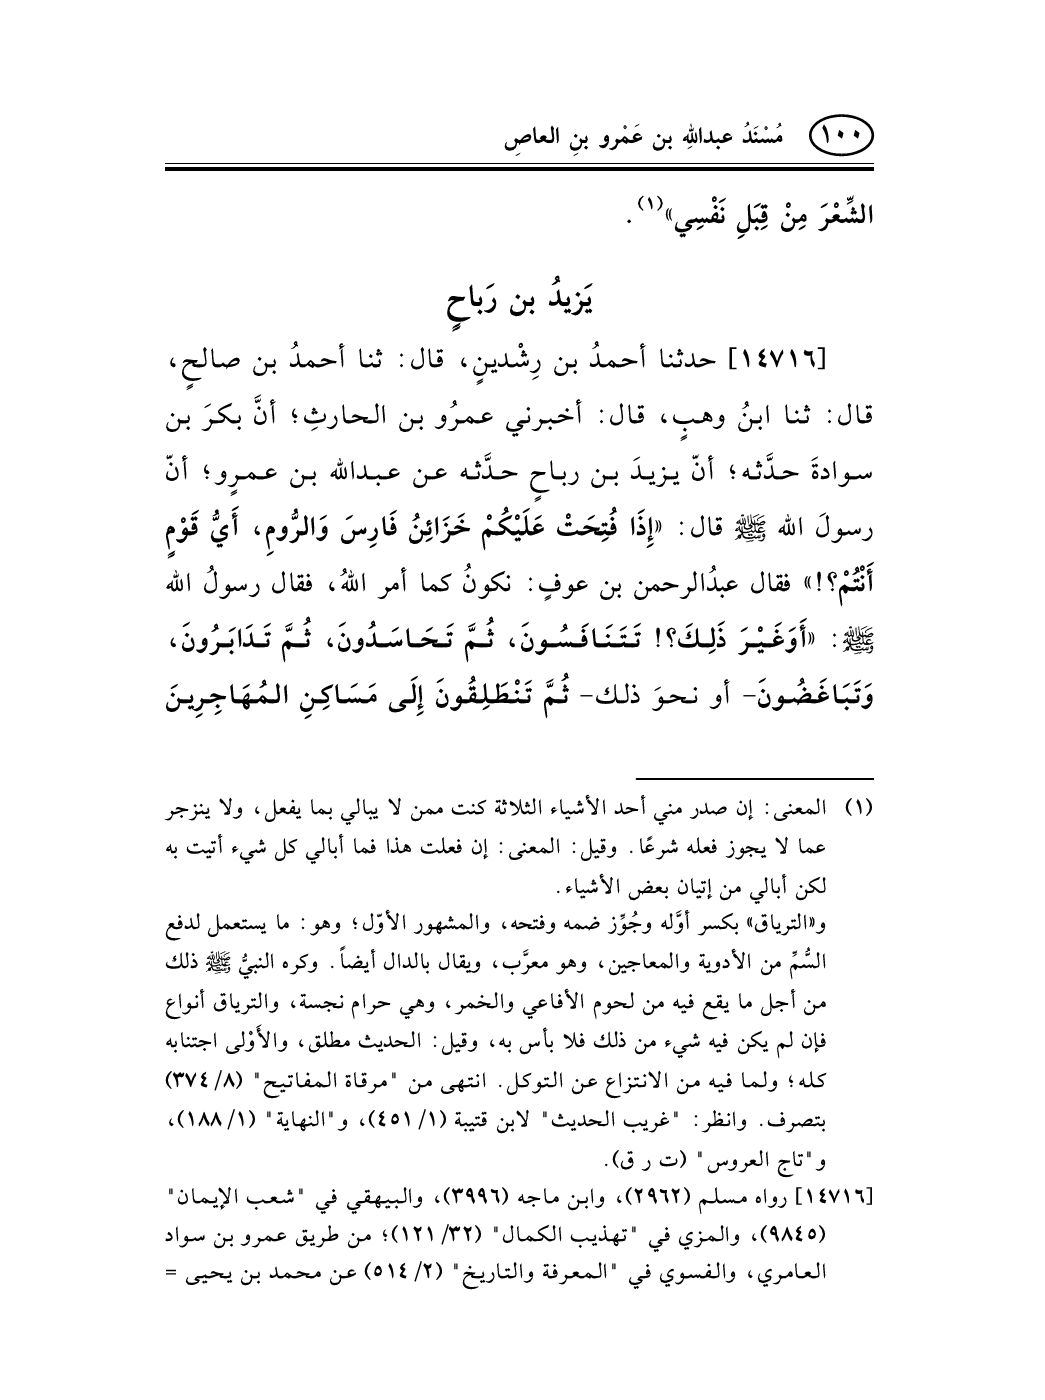 ١٠٠ مُسْنَدُ عبدِاللهِ بن عَمْرو بنِ العاصِ
الشِّعْرَ مِنْ قِبَلِ نَفْسِي»(١).
يَزيدُ بن رَباحٍ
[١٤٧١٦] حدثنا أحمدُ بن رِشْدينٍ، قال: ثنا أحمدُ بن صالحٍ،
قال: ثنا ابنُ وهبٍ، قال: أخبرني عمرُو بن الحارثِ؛ أنَّ بكرَ بن
سوادةَ حدَّثه؛ أنّ يزيدَ بن رباحٍ حدَّثه عن عبدالله بن عمرٍو؛ أنّ
رسولَ الله ﷺ قال: «إِذَا فُتِحَتْ عَلَيْكُمْ خَزَائِنُ فَارِسَ وَالرُّومِ، أَيُّ قَوْمٍ
أَنْتُمْ؟!» فقال عبدُالرحمن بن عوفٍ: نكونُ كما أمر اللهُ، فقال رسولُ الله
ﷺ: «أَوَغَيْرَ ذَلِكَ؟! تَتَنَافَسُونَ، ثُمَّ تَحَاسَدُونَ، ثُمَّ تَدَابَرُونَ،
وَتَبَاغَضُونَ- أو نحوَ ذلك- ثُمَّ تَنْطَلِقُونَ إِلَى مَسَاكِنِ المُهَاجِرِينَ
(١) المعنى: إن صدر مني أحد الأشياء الثلاثة كنت ممن لا يبالي بما يفعل، ولا ينزجر
عما لا يجوز فعله شرعًا. وقيل: المعنى: إن فعلت هذا فما أبالي كل شيء أتيت به
لكن أبالي من إتيان بعض الأشياء.
و«الترياق» بكسر أوَّله وجُوِّز ضمه وفتحه، والمشهور الأوّل؛ وهو: ما يستعمل لدفع
السُّمِّ من الأدوية والمعاجين، وهو معرَّب، ويقال بالدال أيضاً. وكره النبيُّ ﷺ ذلك
من أجل ما يقع فيه من لحوم الأفاعي والخمر، وهي حرام نجسة، والترياق أنواع
فإن لم يكن فيه شيء من ذلك فلا بأس به، وقيل: الحديث مطلق، والأَوْلى اجتنابه
كله؛ ولما فيه من الانتزاع عن التوكل. انتهى من "مرقاة المفاتيح" (٣٧٤/٨)
بتصرف. وانظر: "غريب الحديث" لابن قتيبة (٤٥١/١)، و"النهاية" (١٨٨/١)،
و"تاج العروس" (ت ر ق).
[١٤٧١٦] رواه مسلم (٢٩٦٢)، وابن ماجه (٣٩٩٦)، والبيهقي في "شعب الإيمان"
(٩٨٤٥)، والمزي في "تهذيب الكمال" (١٢١/٣٢)؛ من طريق عمرو بن سواد
العامري، والفسوي في "المعرفة والتاريخ" (٥١٤/٢) عن محمد بن يحيى =